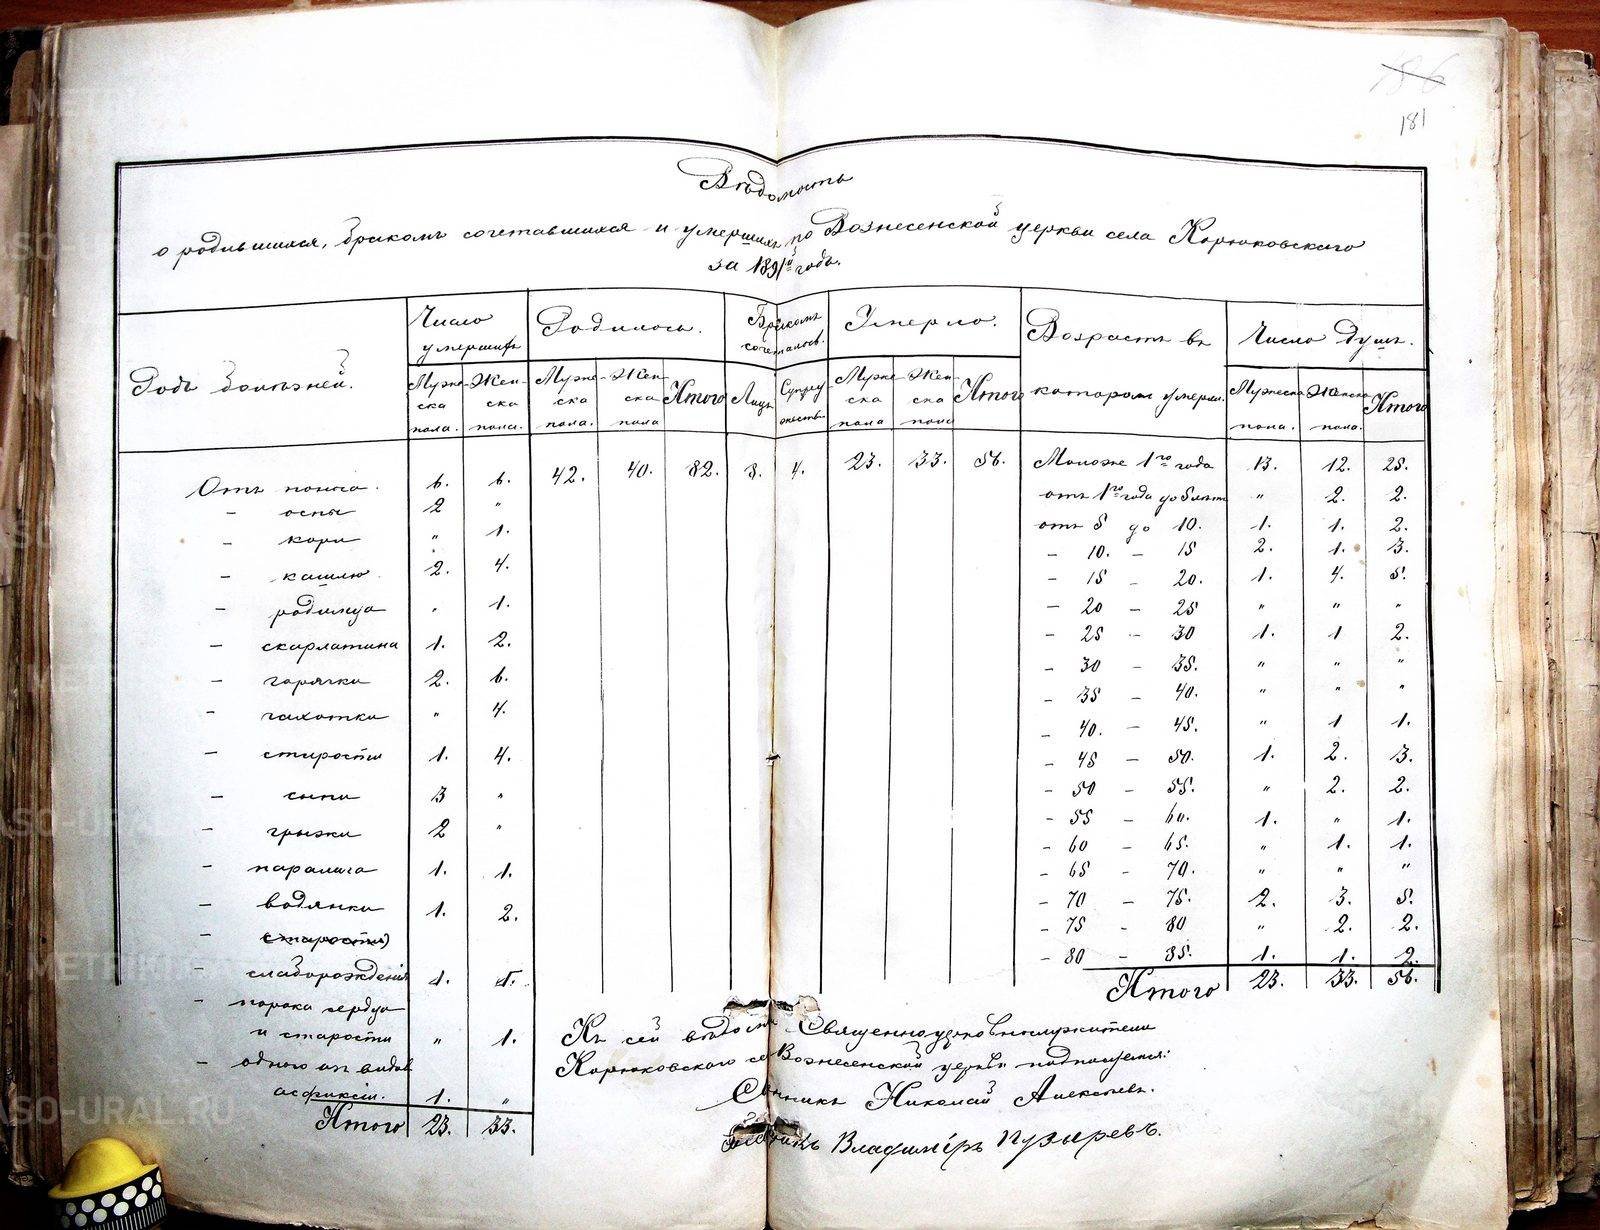 181
Вѣдомость
о родившихся, бракомъ сочетавшихся и умершихъ по Вознесенской церкви села Корюковскаго
за 1891й годъ.
Родъ болѣзней.
Число умершихъ
Родилось.
Бракомъ сочеталось.
Умерло.
Возрастъ въ которомъ умерли.
Число душъ.
Мужеска пола. Женска пола. Мужеска пола. Женска пола Итого Лицъ Супружествъ Мужеска пола Женска пола Итого Мужеска пола. Женска пола. Итого
42. 40. 82. 8. 4. 23. 33. 56.
Отъ поноса. 6. 6.
– оспы 2 "
– кори " 1.
– кашлю 2. 4.
– родимца " 1.
– скарлатина 1. 2.
– горячки 2. 6.
– чахотки " 4.
– старости 1. 4.
– сыпи 3 "
– грыжи 2 "
– паралича 1. 1.
– водянки 1. 2.
– старости
– слаборожденія 1. 1.
– порока сердца
и старости " 1.
– одного из видов
асфиксіи. 1. "
Итого 23. 33.
Моложе 1го года 13. 12. 25.
отъ 1го года до 5 лѣтъ " 2. 2.
отъ 5 до 10. 1. 1. 2.
– 10. – 15 2. 1. 3.
– 15 – 20. 1. 4. 5.
– 20 – 25 " " "
– 25 – 30 1. 1 2.
– 30 – 35. " " "
– 35 – 40. " " "
– 40. – 45. " 1 1.
– 45 – 50. 1. 2. 3.
– 50 – 55. " 2. 2.
– 55 – 60. 1. " 1.
– 60 – 65. " 1. 1.
– 65 – 70. " " "
– 70 – 75. 2. 3. 5.
– 75 – 80 " 2. 2.
– 80 – 85. 1. 1. 2.
Итого 23. 33. 56.
Къ сей Священноцерковнослужители
Корюковскаго Вознесенской церкви подписуемся:
Николай Алексѣевъ.
Владиміръ Пузыревъ.
METRIKI
ASO-URAL.RU